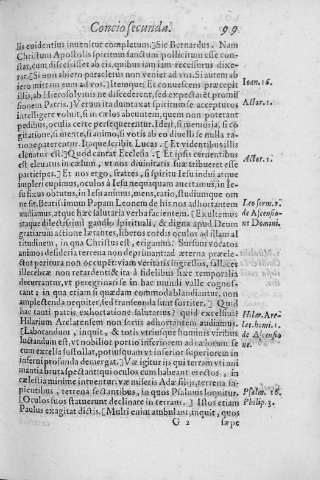 Concio secunda. 99
lis euidentius inuenitur completum.] Sic Bernardus. Nam
Christum Apostolis spiritum sanctum pollicitum esse con-
stat, cum discessisset ab eis, quibus iam iam recessurus dixe-
rat. [Si non abiero paracletus non veniet ad vos. Si autem ab
iero mittam eum ad vos.] Itemque; Et conuescens præcepit Ioan. 16.
illis, ab Hierosolymis ne discederent, sed expectarent promis-
sionem Patris. Verum ita dum taxat spiritum se accepturos Actor. 1.
intelligere voluit, si in cælos abeuntem, quem non poterant
pedibus, oculis certe persequerentur. Idest, si memoria, si co-
gitatione, si mente, si animo, si votis ab eo diuelli se nulla ra-
tione paterentur. Itaque scribit Lucas. [Et videntibus illis
eleuatus est.] Quod cantat Ecclesia. [Et ipsis cernentibus Actor. 1.
est eleuatus in cælum, vt nos diuinitatis suæ tribueret esse
participes.] Et nos ergo, fratres, si spiritu Iesu indui atque
impleri cupimus, oculos à Iesu nequaquam auertamus, in Ie-
su fixus obtutus, in Iesu animus, mens, ratio, studiumque om-
ne sit. Beatissimum Papam Leonem de his nos adhortantem Leo serm. 2.
audiamus, atque hæc salutaria verba facientem. [Exultemus de Ascensio-
itaque dilectissimi gaudio spirituali, & digna apud Deum ne Domini.
gratiarum actione lætantes, liberos cordis oculos ad illam al
titudinem, in qua Christus est, erigamus. Sursum vocatos
animos desideria terrena non deprimant: ad æterna præele-
ctos peritura non occupent: viam veritatis ingressos, fallaces
illecebræ non retardent: & ita à fidelibus hæc temporalia
decurrantur, vt peregrinari se in hac mundi valle cognos-
cant; in qua etiam si quædam commoda blandiantur, non
amplectenda nequiter, sed transeunda sunt fortiter.] Quid
hac tanti patris exhortatione salutarius? quid excellentius? Hilar. Are-
Hilarium Arelatensem non secus adhortantem audiamus. lat. homi. 1.
[Laborandum, inquit, & totis vtriusque hominis viribus de Ascensio
luctandum est, vt nobilior portio inferiorem ad rarorem se ne.
cum excelsi sustollat, potius quam vt inferior superiorem in
inferni profunda demergat. Væ igitur ijs qui terram vti ani
mantia bruta spectant: qui oculos cum habeant erectos, in
cælestia minime intuentur. væ miseris Adæ filijs, terrena sa-
pientibus, terrena sectantibus, in quos Psalmus loquitur. Psalm. 16.
[Oculos suos statuerunt declinare in terram.] Istos etiam
Paulus exagitat dictis. [Multi enim ambulant, inquit, quos Philip. 3.
G 2 sæpe